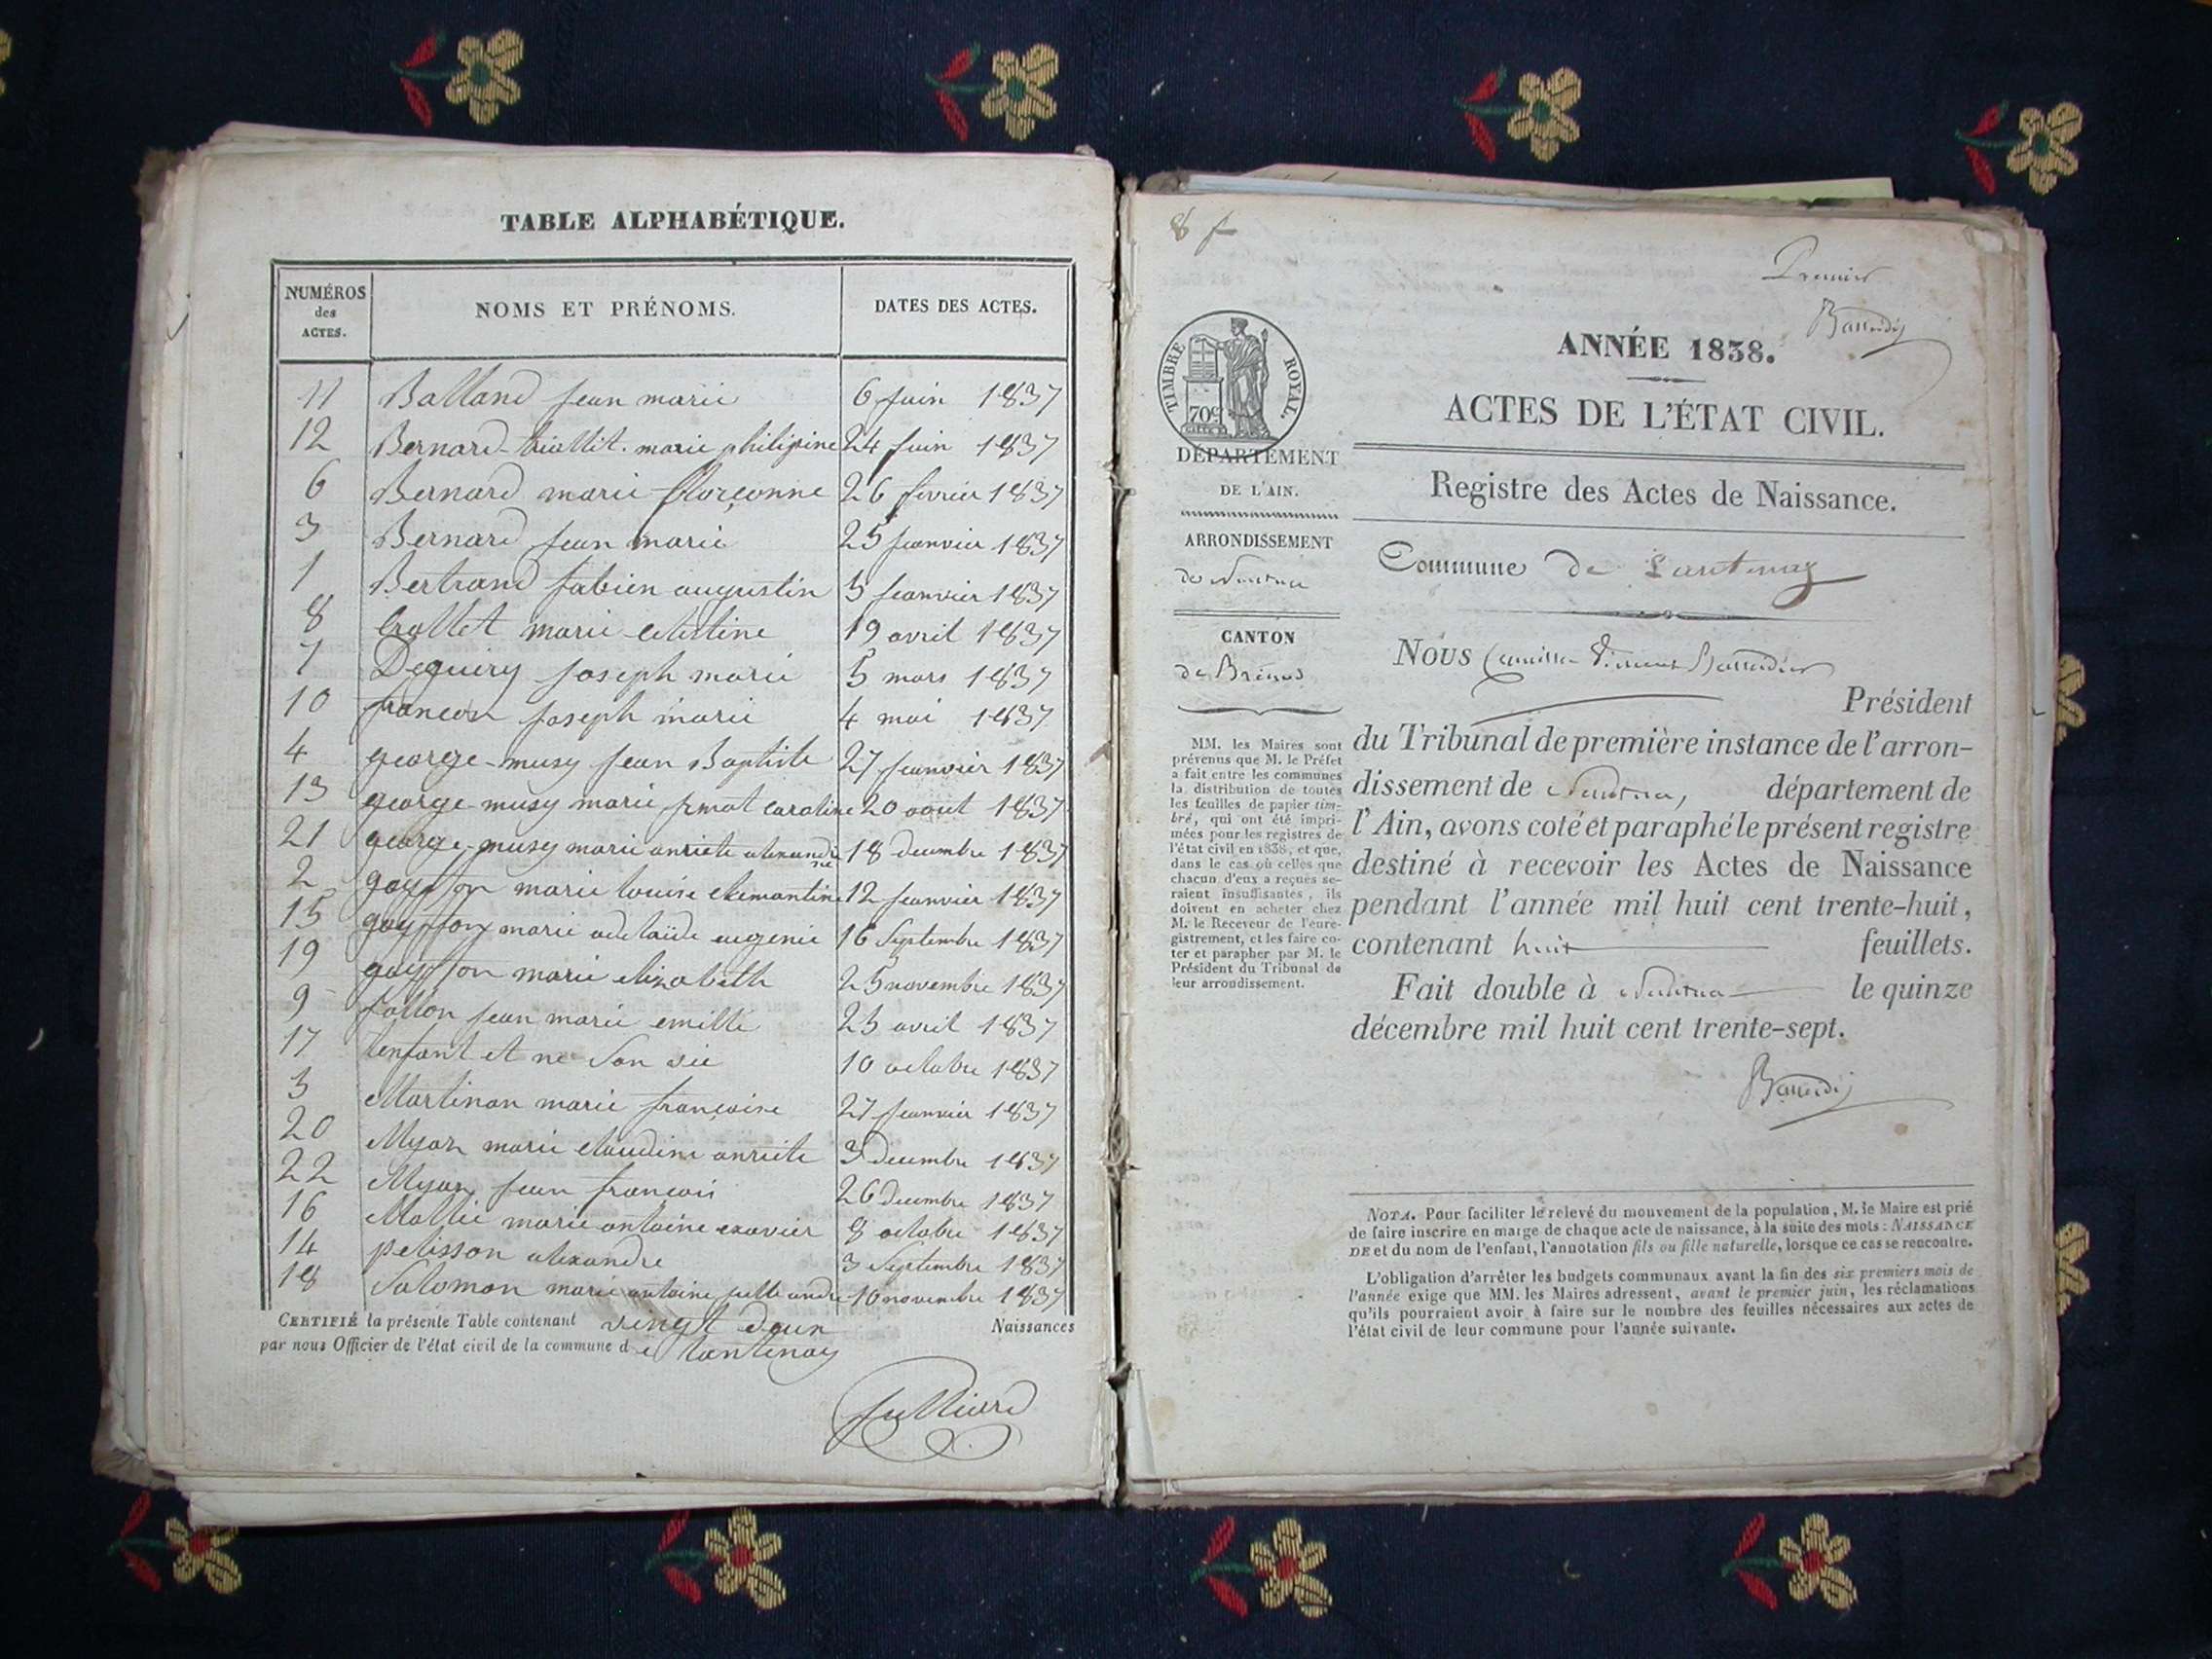 TABLE ALPHABÉTIQUE.
NUMÉROS
des
ACTES.
NOMS ET PRÉNOMS.
DATES DES ACTES.
11 Balland jean marie 6 juin 1837
12 Bernard marie philipine 24 juin 1837
6 Bernard marie 26 fevrier 1837
3 Bernard jean marie 25 janvier 1837
1 Bertrand fabien augustin 5 janvier 1837
8 Crollet marie celestine 19 avril 1837
7 Deguiry joseph marie 5 mars 1837
10 françon joseph marie 4 mai 1837
4 george-musy jean Baptiste 27 janvier 1837
13 george-musy marie caroline 20 aout 1837
21 george-musy marie anriete 18 decembre 1837
2 goyffon marie louise clemantine 12 janvier 1837
15 goyffon marie adelaïde eugenie 16 Septembre 1837
19 goyffon marie elizabeth 25 novembre 1837
9 jollon jean marie emille 25 avril 1837
17 lenfant et ne San vie 10 octobre 1837
5 Martinan marie françoise 27 janvier 1837
20 Myon marie claudine anriete 3 decembre 1837
22 Myon jean françois 26 decembre 1837
16 Mollie marie antoine exavier 8 octobre 1837
14 pelisson alexandre 3 Septembre 1837
18 Salomon marie antoine andre 10 novembre 1837
CERTIFIÉ la présente Table contenant vingt deux Naissances
par nous Officier de l'état civil de la commune de lantenay
Julliard
8 f
Premier
TIMBRE ROYAL.
70c
ANNÉE 1838.
ACTES DE L'ÉTAT CIVIL.
Registre des Actes de Naissance.
DÉPARTEMENT
DE L'AIN.
ARRONDISSEMENT
de Nantua
CANTON
de Brénod
MM. les Maires sont
prévenus que M. le Préfet
a fait entre les communes
la distribution de toutes
les feuilles de papier tim-
bré, qui ont été impri-
mées pour les registres de
l'état civil en 1838, et que,
dans le cas où celles que
chacun d'eux a reçues se-
raient insuffisantes, ils
doivent en acheter chez
M. le Receveur de l'enre-
gistrement, et les faire co-
ter et parapher par M. le
Président du Tribunal de
leur arrondissement.
Commune de Lantenay
Nous Camille Vincent
Président
du Tribunal de première instance de l'arron-
dissement de Nantua, département de
l'Ain, avons coté et paraphé le présent registre
destiné à recevoir les Actes de Naissance
pendant l'année mil huit cent trente-huit,
contenant huit feuillets.
Fait double à Nantua le quinze
décembre mil huit cent trente-sept.
NOTA. Pour faciliter le relevé du mouvement de la population, M. le Maire est prié
de faire inscrire en marge de chaque acte de naissance, à la suite des mots : NAISSANCE
DE et du nom de l'enfant, l'annotation fils ou fille naturelle, lorsque ce cas se rencontre.
L'obligation d'arrêter les budgets communaux avant la fin des six premiers mois de
l'année exige que MM. les Maires adressent, avant le premier juin, les réclamations
qu'ils pourraient avoir à faire sur le nombre des feuilles nécessaires aux actes de
l'état civil de leur commune pour l'année suivante.